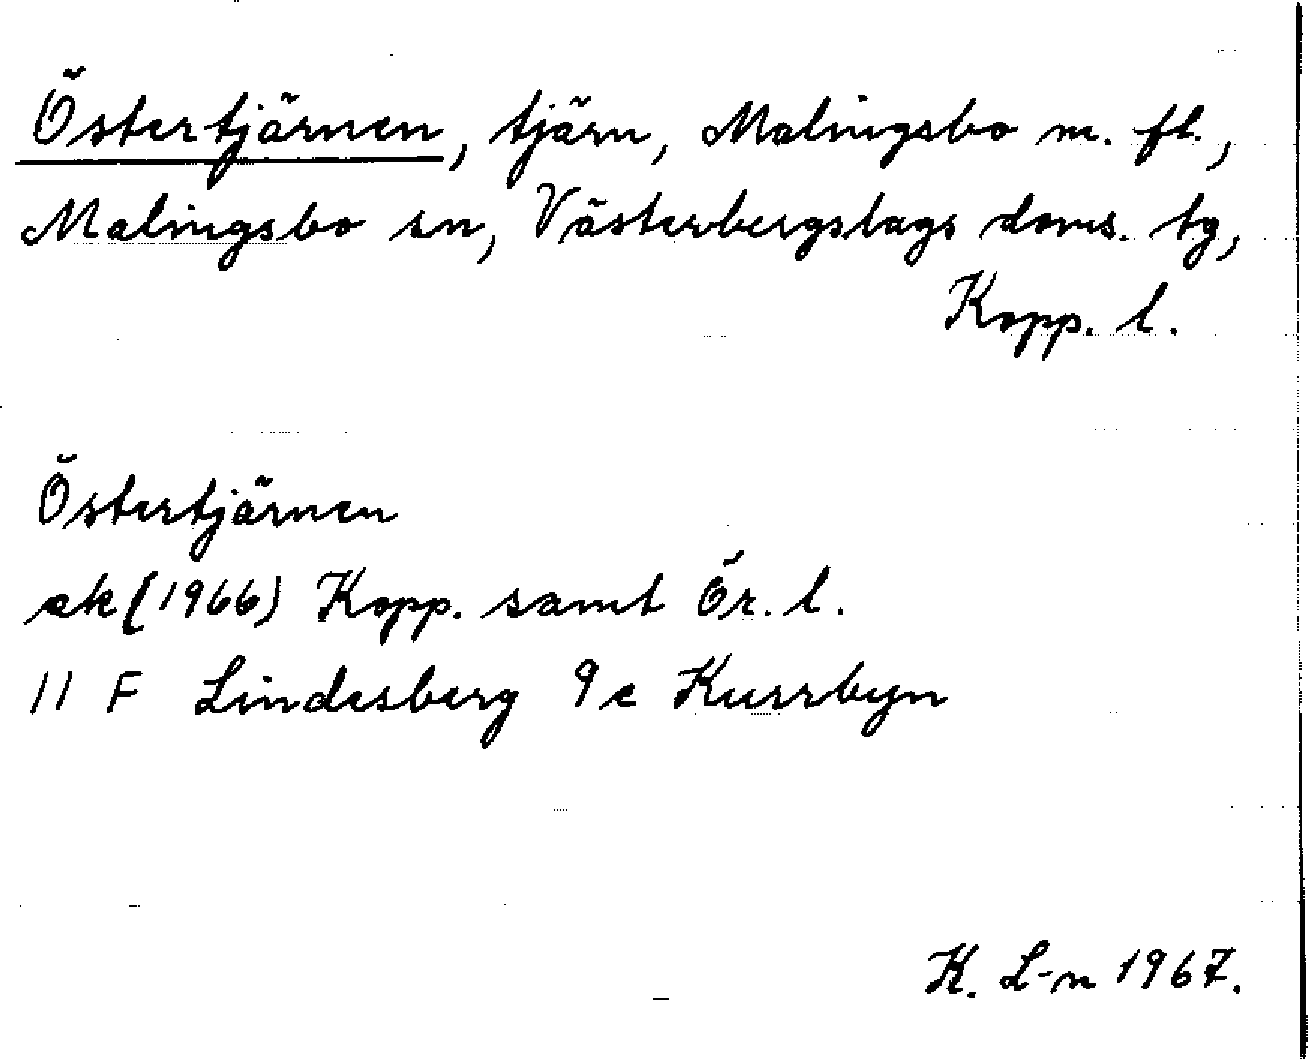 Östertjärnen, tjärn, Malingsbo m. fl.,
Malingsbo sn, Västerbergslags doms. tg,
Kopp. l.
Östertjärnen
ek (1966) Kopp. samt Ör. l.
11 F Lindesberg 9c Kurrbyn
K. L-n 1967.